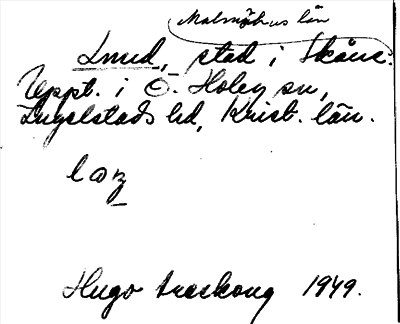 Malmöhus län
Lund, stad i Skåne.
Uppt. i Ö. Hoby sn,
Ingelstads hd, Krist. län.
Hugo Areskoug 1949.